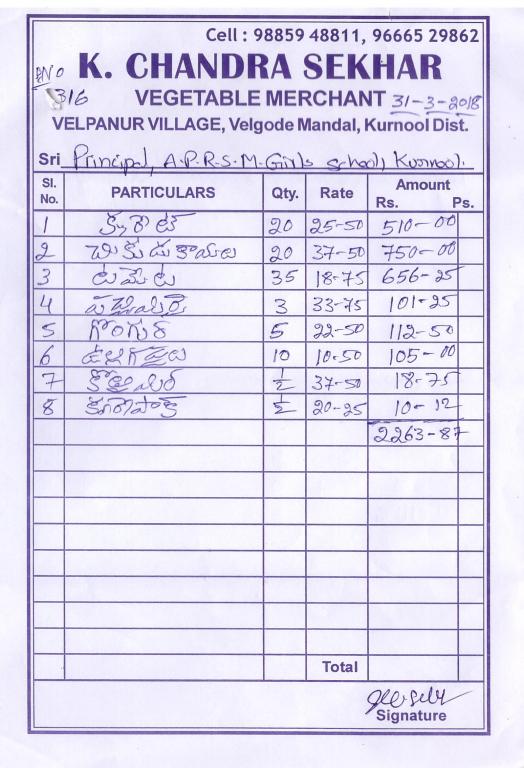 Cell : 98859 48811, 96665 29862
K. CHANDRA SEKHAR
BNo 316
VEGETABLE MERCHANT 31-3-2018
VELPANUR VILLAGE, Velgode Mandal, Kurnool Dist.
Sri Principal, A.P.R.S.M-Girls school, Kurnool.
Sl. No. PARTICULARS Qty. Rate Amount Rs. Ps.
1 క్యారెట్ 20 25-50 510-00
2 చికుడుకాయలు 20 37-50 750-00
3 టమేట 35 18-75 656-25
4 పచ్చిమిర్చి 3 33-75 101-25
5 గోంగుర 5 22-50 112-50
6 ఉల్లిగడ్డలు 10 10-50 105-00
7 కొత్తిమీర ½ 37-50 18-75
8 కరేపాక్ ½ 20-25 10-12
2263-87
Total
Signature